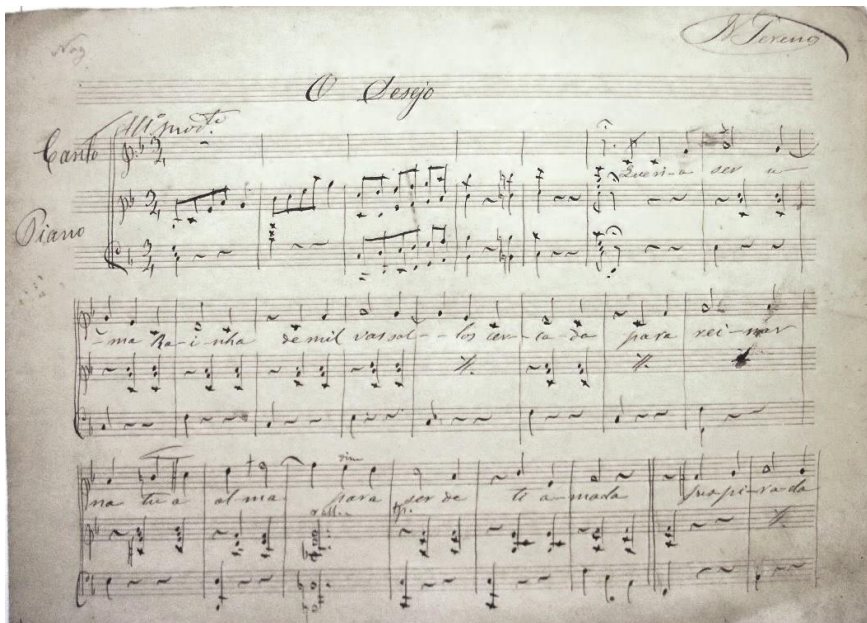 N. Pereno
O Desejo
All.º mod.to
Canto
Queri-a ser u-
Piano
-ma Ra-i-nha de mil vassal--los cer-ca-da para rei-nar
na tu-a alma para ser de ti a-mada Inspi-ra-da
rall.